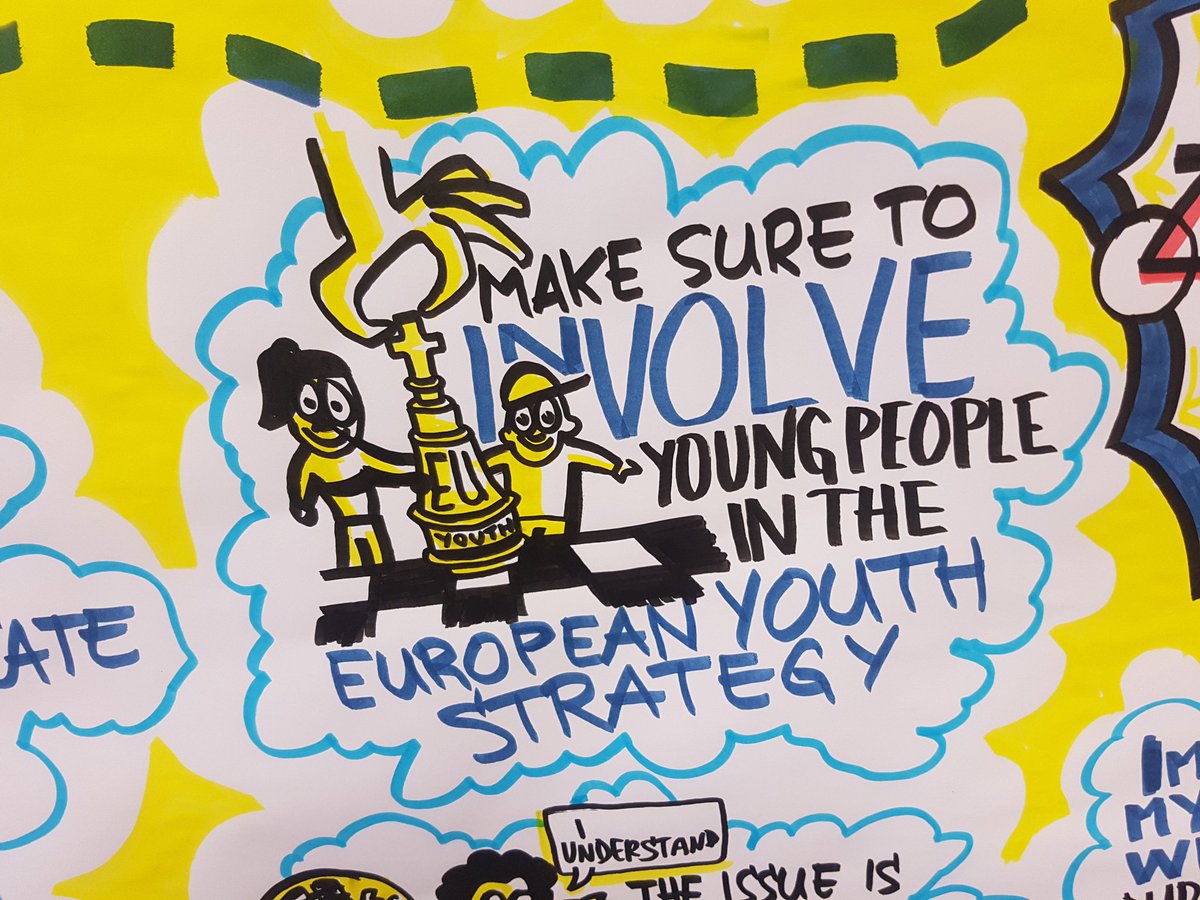 MAKE SURE TO
INVOLVE
YOUNG PEOPLE
IN THE
EUROPEAN YOUTH
STRATEGY
EU
YOUTH
I UNDERSTAND
THE ISSUE IS
MY